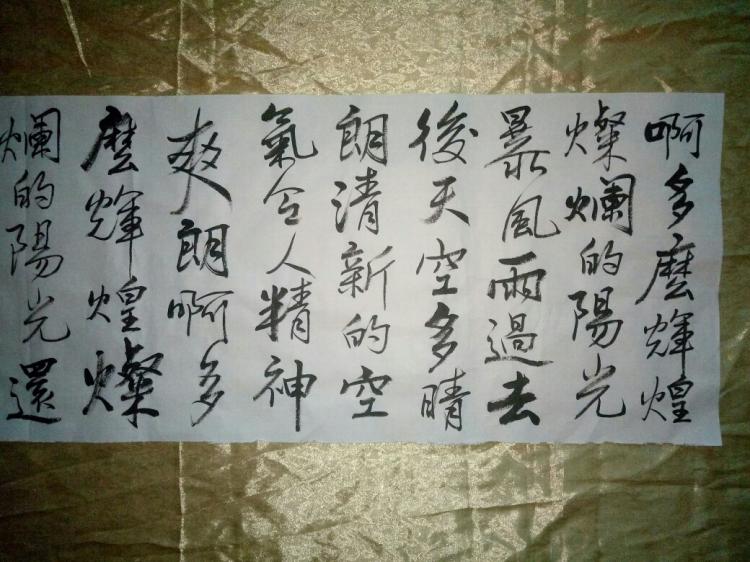 啊多麽輝煌
燦爛的陽光
暴風雨過去
後天空多晴
朗清新的空
氣令人精神
爽朗啊多
麽輝煌燦
爛的陽光還